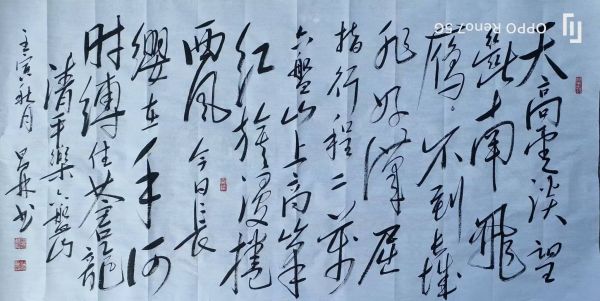 天高雲淡望
斷南飛
雁不到長城
非好漢屈
指行程二萬
六盤山上高峰
紅旗漫捲
西風今日長
纓在手何
時縛住蒼龍
清平樂六盤山
壬寅秋月
书
OPPO Reno7 5G